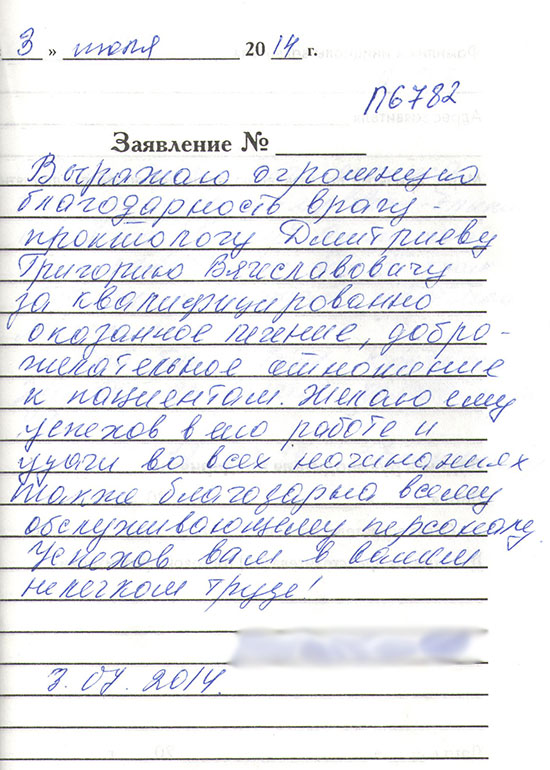 3 » июля 2014 г.
П6782
Заявление №
Выражаю огромную
благодарность врачу -
проктологу Дмитриеву
Григорию Вячеславовичу
за квалифицированно
оказанное лечение, добро-
желательное отношение
к пациентам. Желаю ему
успехов в его работе и
удачи во всех начинаниях
также благодарна всему
обслуживающему персоналу.
Успехов вам в вашем
нелегком труде!
3.07.2014.